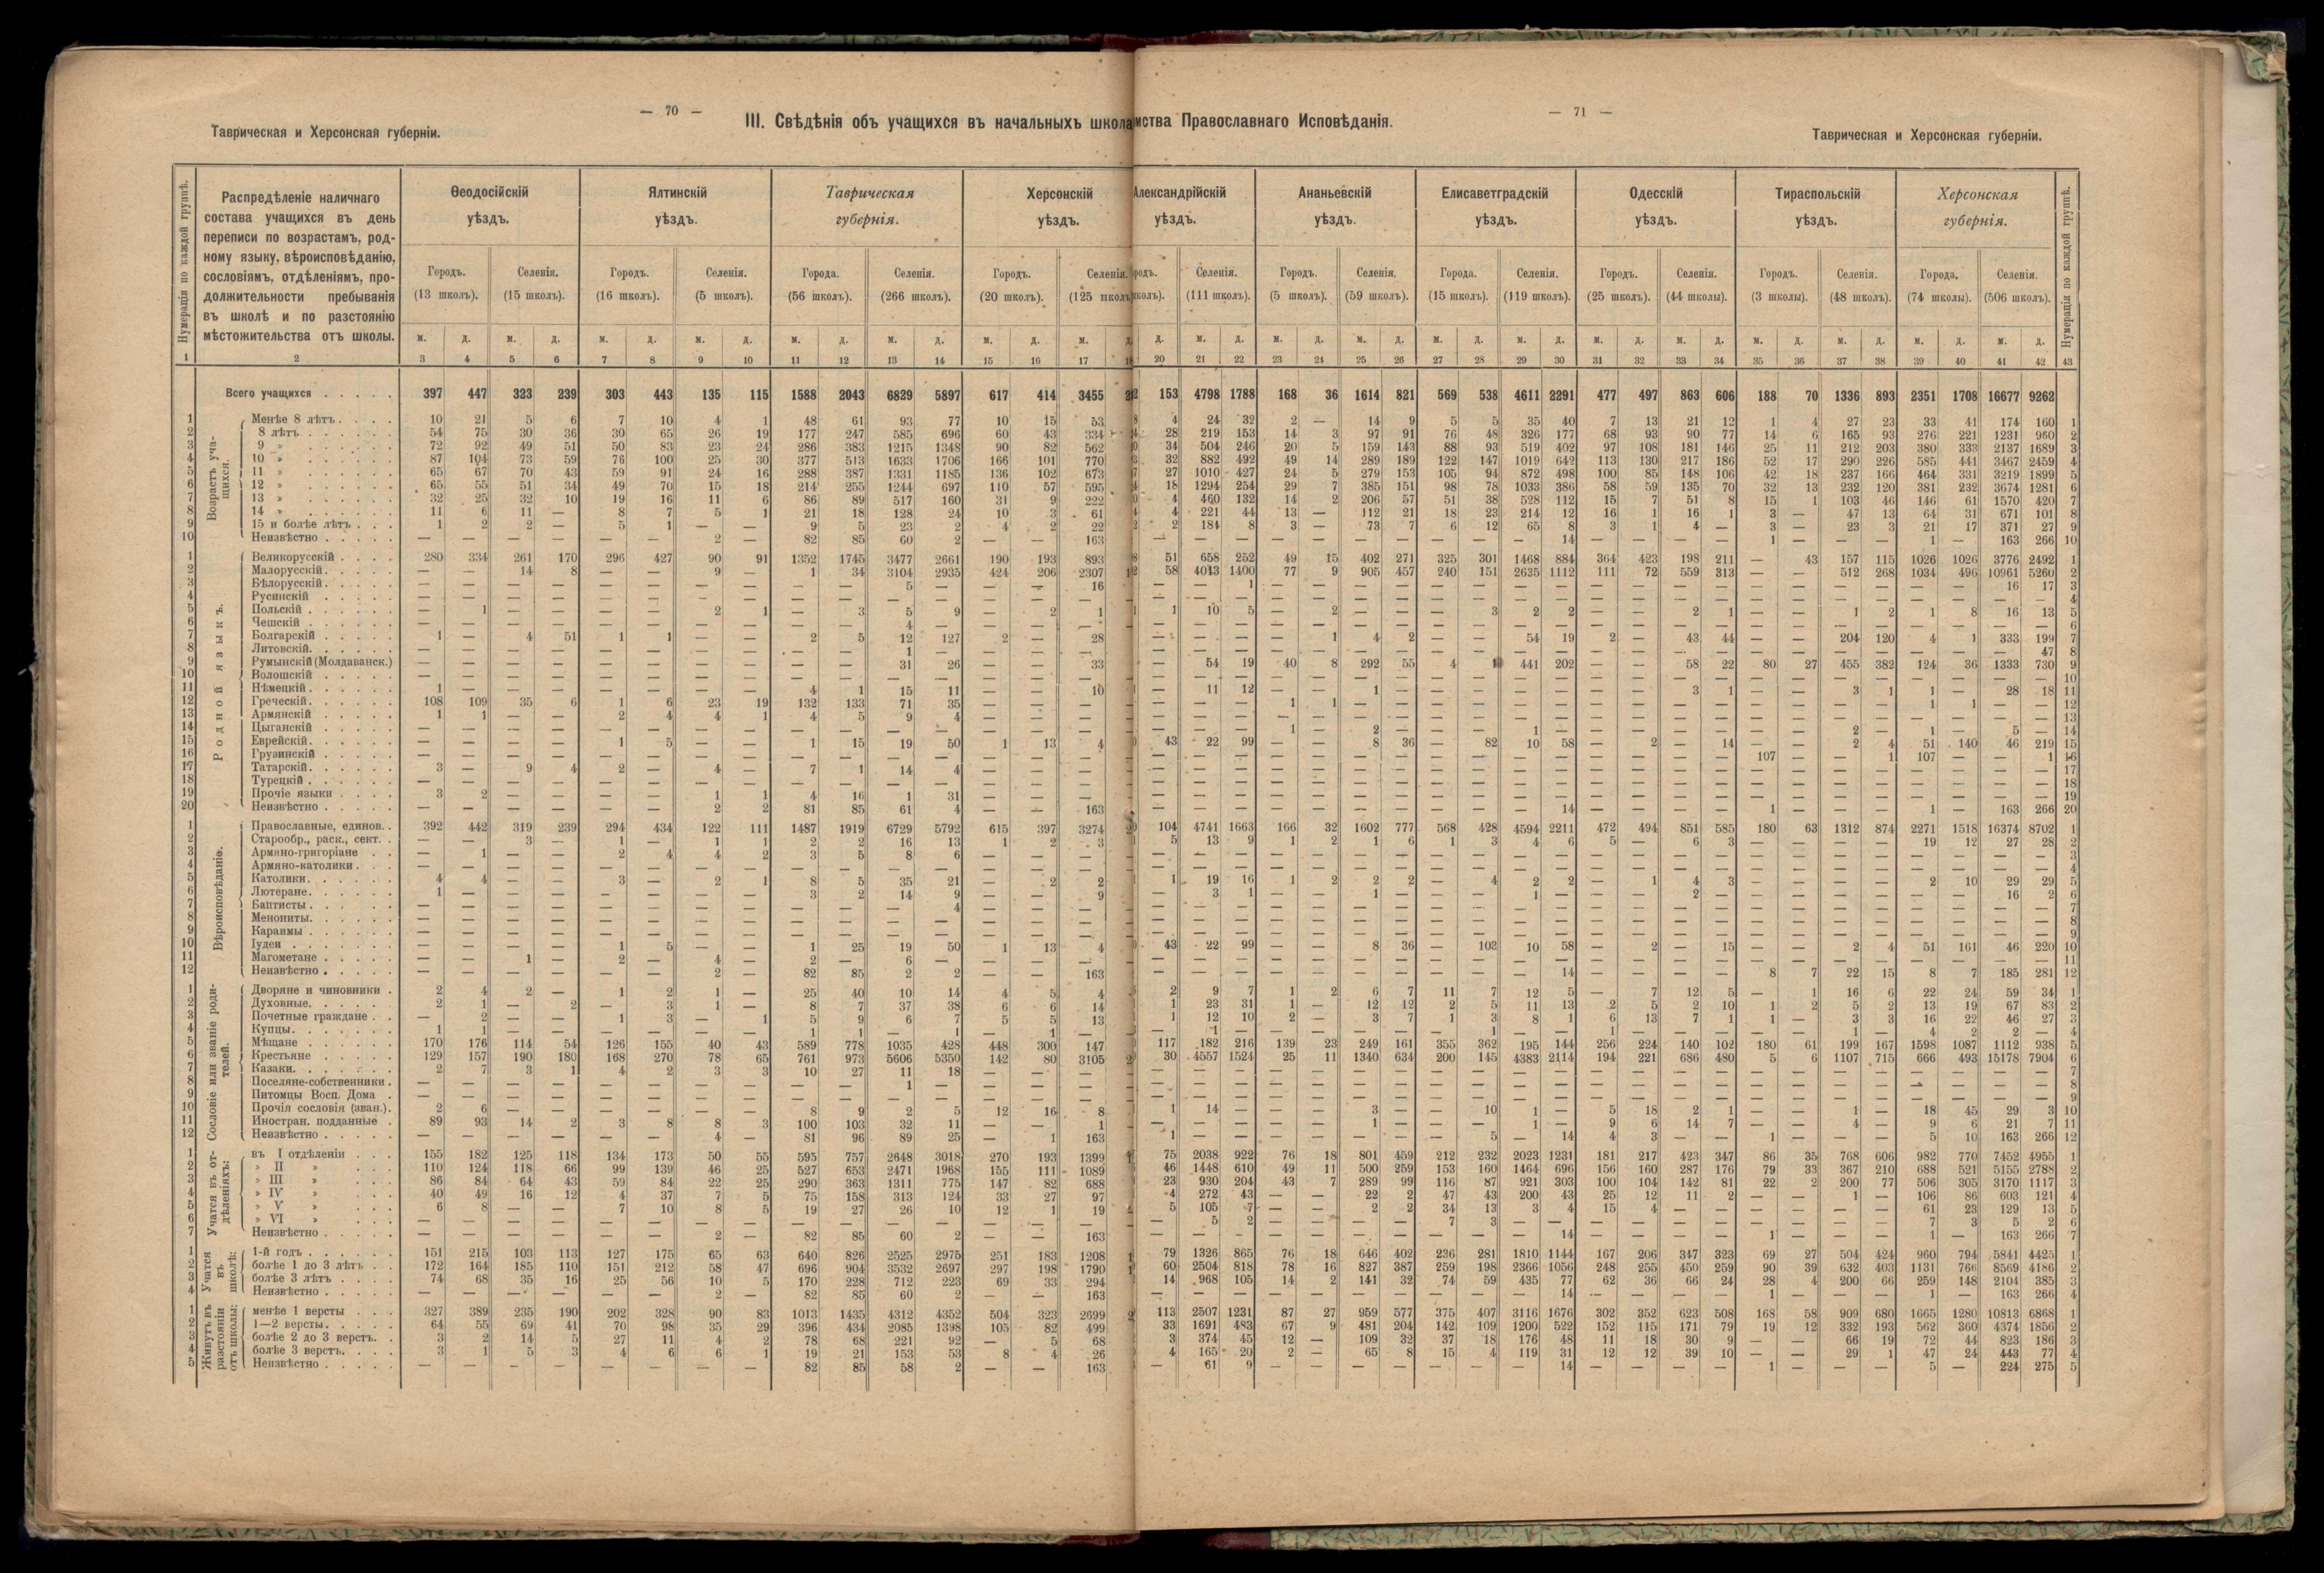 — 70 —
— 71 —
III. Свѣдѣнія объ учащихся въ начальныхъ школа мства Православнаго Исповѣданія.
Таврическая и Херсонская губерніи.
Таврическая и Херсонская губерніи.
Нумерація по каждой группѣ.
Распредѣленіе наличнаго
состава учащихся въ день
переписи по возрастамъ, род-
ному языку, вѣроисповѣданію,
сословіямъ, отдѣленіямъ, про-
должительности пребыванія
въ школѣ и по разстоянію
мѣстожительства отъ школы.
Ѳеодосійскій уѣздъ. Ялтинскій уѣздъ. Таврическая губернія. Херсонскій уѣздъ. Александрійскій уѣздъ. Ананьевскій уѣздъ. Елисаветградскій уѣздъ. Одесскій уѣздъ. Тираспольскій уѣздъ. Херсонская губернія.
Городъ. Селенія. Городъ. Селенія. Города. Селенія. Городъ. Селенія. Селенія. Городъ. Селенія. Города. Селенія. Городъ. Селенія. Городъ. Селенія. Города. Селенія.
(13 школъ). (15 школъ). (16 школъ). (5 школъ). (56 школъ). (266 школъ). (20 школъ). (125 школъ (111 школъ). (5 школъ). (59 школъ). (15 школъ). (119 школъ). (25 школъ). (44 школы). (3 школы). (48 школъ). (74 школы). (506 школъ).
м. д. м. д. м. д. м. д. м. д. м. д. м. д. м. д. м. д. м. д. м. д. м. д. м. д. м. д. м. д. м. д. м. д. м. д. м. д.
1 2 3 4 5 6 7 8 9 10 11 12 13 14 15 16 17 20 21 22 23 24 25 26 27 28 29 30 31 32 33 34 35 36 37 38 39 40 41 42 43
Нумерація по каждой группѣ.
Всего учащихся 397 447 323 239 303 443 135 115 1588 2043 6829 5897 617 414 3455 153 4798 1788 168 36 1614 821 569 538 4611 2291 477 497 863 606 188 70 1336 893 2351 1708 16677 9262
Возрастъ уча-
щихся.
1 Менѣе 8 лѣтъ 10 21 5 6 7 10 4 1 48 61 93 77 10 15 53 4 24 32 2 — 14 9 5 5 35 40 7 13 21 12 1 4 27 23 33 41 174 160 1
2 8 лѣтъ 54 75 30 36 30 65 26 19 177 247 585 696 60 43 334 28 219 153 14 3 97 91 76 48 326 177 68 93 90 77 14 6 165 93 276 221 1231 960 2
3 9 » 72 92 49 51 50 83 23 24 286 383 1215 1348 90 82 562 34 504 246 20 5 159 143 88 93 519 402 97 108 181 146 25 11 212 203 380 333 2137 1689 3
4 10 » 87 104 73 59 76 100 25 30 377 513 1633 1706 166 101 770 32 882 492 49 14 289 189 122 147 1019 642 113 130 217 186 52 17 290 226 585 441 3467 2459 4
5 11 » 65 67 70 43 59 91 24 16 288 387 1331 1185 136 102 673 27 1010 427 24 5 279 153 105 94 872 498 100 85 148 106 42 18 237 166 464 331 3219 1899 5
6 12 » 65 55 51 34 49 70 15 18 214 255 1244 697 110 57 595 18 1294 254 29 7 385 151 98 78 1033 386 58 59 135 70 32 13 232 120 381 232 3674 1281 6
7 13 » 32 25 32 10 19 16 11 6 86 89 517 160 31 9 222 4 460 132 14 2 206 57 51 38 528 112 15 7 51 8 15 1 103 46 146 61 1570 420 7
8 14 » 11 6 11 — 8 7 5 1 21 18 128 24 10 3 61 4 221 44 13 — 112 21 18 23 214 12 16 1 16 1 3 — 47 13 64 31 671 101 8
9 15 и болѣе лѣтъ 1 2 2 — 5 1 — — 9 5 23 2 4 2 22 2 184 8 3 — 73 7 6 12 65 8 3 1 4 — 3 — 23 3 21 17 371 27 9
10 Неизвѣстно — — — — — — 2 — 82 85 60 2 — — 163 — — — — — — — — — 14 — — — — — 1 — — — 1 — 163 266 10
Родной языкъ.
1 Великорусскій 280 334 261 170 296 427 90 91 1352 1745 3477 2661 190 193 893 51 658 252 49 15 402 271 325 301 1468 884 364 423 198 211 — 43 157 115 1026 1026 3776 2492 1
2 Малорусскій — — 14 8 — — 9 — 1 34 3104 2935 424 206 2307 58 4013 1400 77 9 905 457 240 151 2635 1112 111 72 559 313 — — 512 268 1034 496 10961 5260 2
3 Бѣлорусскій — — — — — — — — — — 5 — — — 16 — — 1 — — — — — — — — — — — — — — — — — — 16 17 3
4 Русинскій — — — — — — — — — — — — — — — 4
5 Польскій — 1 — — — — 2 1 — 3 5 9 — 2 1 1 10 5 — 2 — — — 3 2 2 — — 2 1 — — 1 2 1 8 16 13 5
6 Чешскій — — — — — — — — — — 4 — — — — 6
7 Болгарскій 1 — 4 51 1 1 — — 2 5 12 127 2 — 28 — — — — 1 4 2 — — 54 19 2 — 43 44 — — 204 120 4 1 333 199 7
8 Литовскій — — — — — — — — — — 1 — — — — 47 8
9 Румынскій (Молдаванск.) — — — — — — — — — — 31 26 — — 33 — 54 19 40 8 292 55 4 1 441 202 — — 58 22 80 27 455 382 124 36 1333 730 9
10 Волошскій — — — — — — — — — — — — — — — 10
11 Нѣмецкій 1 — — — — — — — 4 1 15 11 — — 10 — 11 12 — — 1 — — — — — — — 3 1 — — 3 1 1 — 28 18 11
12 Греческій 108 109 35 6 1 6 23 19 132 133 71 35 — — — — — — 1 1 — — — — — — — — — — — — — — 1 1 — — 12
13 Армянскій 1 1 — — 2 4 4 1 4 5 9 4 — — — 13
14 Цыганскій — — — — — — — — — — — — — — — — — — 1 — 2 — — — 1 — — — — — — — 2 — 1 — 5 — 14
15 Еврейскій — — — — 1 5 — — 1 15 19 50 1 13 4 43 22 99 — — 8 36 — 82 10 58 — 2 — 14 — — 2 4 51 140 46 219 15
16 Грузинскій — — — — — — — — — — — — — — — — — — — — — — — — — — — — — — 107 — — 1 107 — — 1 16
17 Татарскій 3 — 9 4 2 — 4 — 7 1 14 4 — — — 17
18 Турецкій — — — — — — — — — — — — — — — 18
19 Прочіе языки 3 2 — — — — 1 1 4 16 1 31 — — — 19
20 Неизвѣстно — — — — — — 2 2 81 85 61 4 — — 163 — — — — — — — — — 14 — — — — — 1 — — — 1 — 163 266 20
Вѣроисповѣданіе.
1 Православные, единов. 392 442 319 239 294 434 122 111 1487 1919 6729 5792 615 397 3274 104 4741 1663 166 32 1602 777 568 428 4594 2211 472 494 851 585 180 63 1312 874 2271 1518 16374 8702 1
2 Старообр., раск., сект. — — 3 — 1 — 1 1 2 2 16 13 1 2 3 5 13 9 1 2 1 6 1 3 4 6 5 — 6 3 — — — — 19 12 27 28 2
3 Армяно-григоріане — 1 — — 2 4 4 2 3 5 8 6 — — — 3
4 Армяно-католики — — — — — — — — — — — — — — — 4
5 Католики 4 4 — — 3 — 2 1 8 5 35 21 — 2 2 1 19 16 1 2 2 2 — 4 2 2 — 1 4 3 — — — — 2 10 29 29 5
6 Лютеране 1 — — — — — — — 3 2 14 9 — — 9 — 3 1 — — 1 — — — 1 — — — 2 — — — — — — — 16 2 6
7 Баптисты — — — — — — — — — — — 4 — — — 7
8 Менониты — — — — — — — — — — — — — — — 8
9 Караимы — — — — — — — — — — — — — — — 9
10 Іудеи — — — — 1 5 — — 1 25 19 50 1 13 4 43 22 99 — — 8 36 — 103 10 58 — 2 — 15 — — 2 4 51 161 46 220 10
11 Магометане — — 1 — 2 — 4 — 2 — 6 — — — — 11
12 Неизвѣстно — — — — — — 2 — 82 85 2 2 — — 163 — — — — — — — — — 14 — — — — — 8 7 22 15 8 7 185 281 12
Сословіе или званіе роди-
телей.
1 Дворяне и чиновники 2 4 2 — 1 2 1 — 25 40 10 14 4 5 4 2 9 7 1 2 6 7 11 7 12 5 — 7 12 5 — 1 16 6 22 24 59 34 1
2 Духовные 2 1 — 2 — 3 1 — 8 7 37 38 6 6 14 1 23 31 1 — 12 12 2 5 11 13 2 5 2 10 1 2 5 2 13 19 67 83 2
3 Почетные граждане — 2 — — 1 3 — 1 5 9 6 7 5 5 13 1 12 10 2 — 3 7 1 3 8 1 6 13 7 1 1 — 3 3 16 22 46 27 3
4 Купцы 1 1 — — — — — — 1 1 — 1 — 1 — — 1 — — — — — — 1 — — 1 — — — — — 1 — 4 2 2 — 4
5 Мѣщане 170 176 114 54 126 155 40 43 589 778 1035 428 448 300 147 117 182 216 139 23 249 161 355 362 195 144 256 224 140 102 180 61 199 167 1598 1087 1112 938 5
6 Крестьяне 129 157 190 180 168 270 78 65 761 973 5606 5350 142 80 3105 30 4557 1524 25 11 1340 634 200 145 4383 2114 194 221 686 480 5 6 1107 715 666 493 15178 7904 6
7 Казаки 2 7 3 1 4 2 3 3 10 27 11 18 — — — 7
8 Поселяне-собственники — — — — — — — — — — 1 — — — — 8
9 Питомцы Восп. Дома — — — — — — — — — — — — — — — 9
10 Прочія сословія (зван.) 2 6 — — — — — — 8 9 2 5 12 16 8 1 14 — — — 3 — — 10 1 — 5 18 2 1 — — 1 — 18 45 29 3 10
11 Иностран. подданные 89 93 14 2 3 8 8 3 100 103 32 11 — — 1 — — — — — 1 — — — 1 — 9 6 14 7 — — 4 — 9 6 21 7 11
12 Неизвѣстно — — — — — — 4 — 81 96 89 25 — 1 163 1 — — — — — — — 5 — 14 4 3 — — 1 — — — 5 10 163 266 12
Учатся въ от-
дѣленіяхъ:
1 въ I отдѣленіи 155 182 125 118 134 173 50 55 595 757 2648 3018 270 193 1399 75 2038 922 76 18 801 459 212 232 2023 1231 181 217 423 347 86 35 768 606 982 770 7452 4955 1
2 » II » 110 124 118 66 99 139 46 25 527 653 2471 1968 155 111 1089 46 1448 610 49 11 500 259 153 160 1464 696 156 160 287 176 79 33 367 210 688 521 5155 2788 2
3 » III » 86 84 64 43 59 84 22 25 290 363 1311 775 147 82 688 23 930 204 43 7 289 99 116 87 921 303 100 104 142 81 22 2 200 77 506 305 3170 1117 3
4 » IV » 40 49 16 12 4 37 7 5 75 158 313 124 33 27 97 4 272 43 — — 22 2 47 43 200 43 25 12 11 2 — — 1 — 106 86 603 121 4
5 » V » 6 8 — — 7 10 8 5 19 27 26 10 12 1 19 5 105 7 — — 2 2 34 13 3 4 15 4 — — — — — — 61 23 129 13 5
6 » VI » — — — — — — — — — — — — — — — — 5 2 — — — — 7 3 — — — — — — — — — — 7 3 5 2 6
7 Неизвѣстно — — — — — — 2 — 82 85 60 2 — — 163 — — — — — — — — — 14 — — — — — 1 — — — 1 — 163 266 7
Учатся
въ
школѣ:
1 1-й годъ 151 215 103 113 127 175 65 63 640 826 2525 2975 251 183 1208 79 1326 865 76 18 646 402 236 281 1810 1144 167 206 347 323 69 27 504 424 960 794 5841 4425 1
2 болѣе 1 до 3 лѣтъ 172 164 185 110 151 212 58 47 696 904 3532 2697 297 198 1790 60 2504 818 78 16 827 387 259 198 2366 1056 248 255 450 259 90 39 632 403 1131 766 8569 4186 2
3 болѣе 3 лѣтъ 74 68 35 16 25 56 10 5 170 228 712 223 69 33 294 14 968 105 14 2 141 32 74 59 435 77 62 36 66 24 28 4 200 66 259 148 2104 385 3
4 Неизвѣстно — — — — — — 2 — 82 85 60 2 — — 163 — — — — — — — — — 14 — — — — — 1 — — — 1 — 163 266 4
Живутъ въ
разстояніи
отъ школы:
1 менѣе 1 версты 327 389 235 190 202 328 90 83 1013 1435 4312 4352 504 323 2699 113 2507 1231 87 27 959 577 375 407 3116 1676 302 352 623 508 168 58 909 680 1665 1280 10813 6868 1
2 1—2 версты 64 55 69 41 70 98 35 29 396 434 2085 1398 105 82 499 33 1691 483 67 9 481 204 142 109 1200 522 152 115 171 79 19 12 332 193 562 360 4374 1856 2
3 болѣе 2 до 3 верстъ 3 2 14 5 27 11 4 2 78 68 221 92 — 5 68 3 374 45 12 — 109 32 37 18 176 48 11 18 30 9 — — 66 19 72 44 823 186 3
4 болѣе 3 верстъ 3 1 5 3 4 6 6 1 19 21 153 53 8 4 26 4 165 20 2 — 65 8 15 4 119 31 12 12 39 10 — — 29 1 47 24 443 77 4
5 Неизвѣстно — — — — — — — — 82 85 58 2 — — 163 — 61 9 — — — — — — — 14 — — — — 1 — — — 5 — 224 275 5